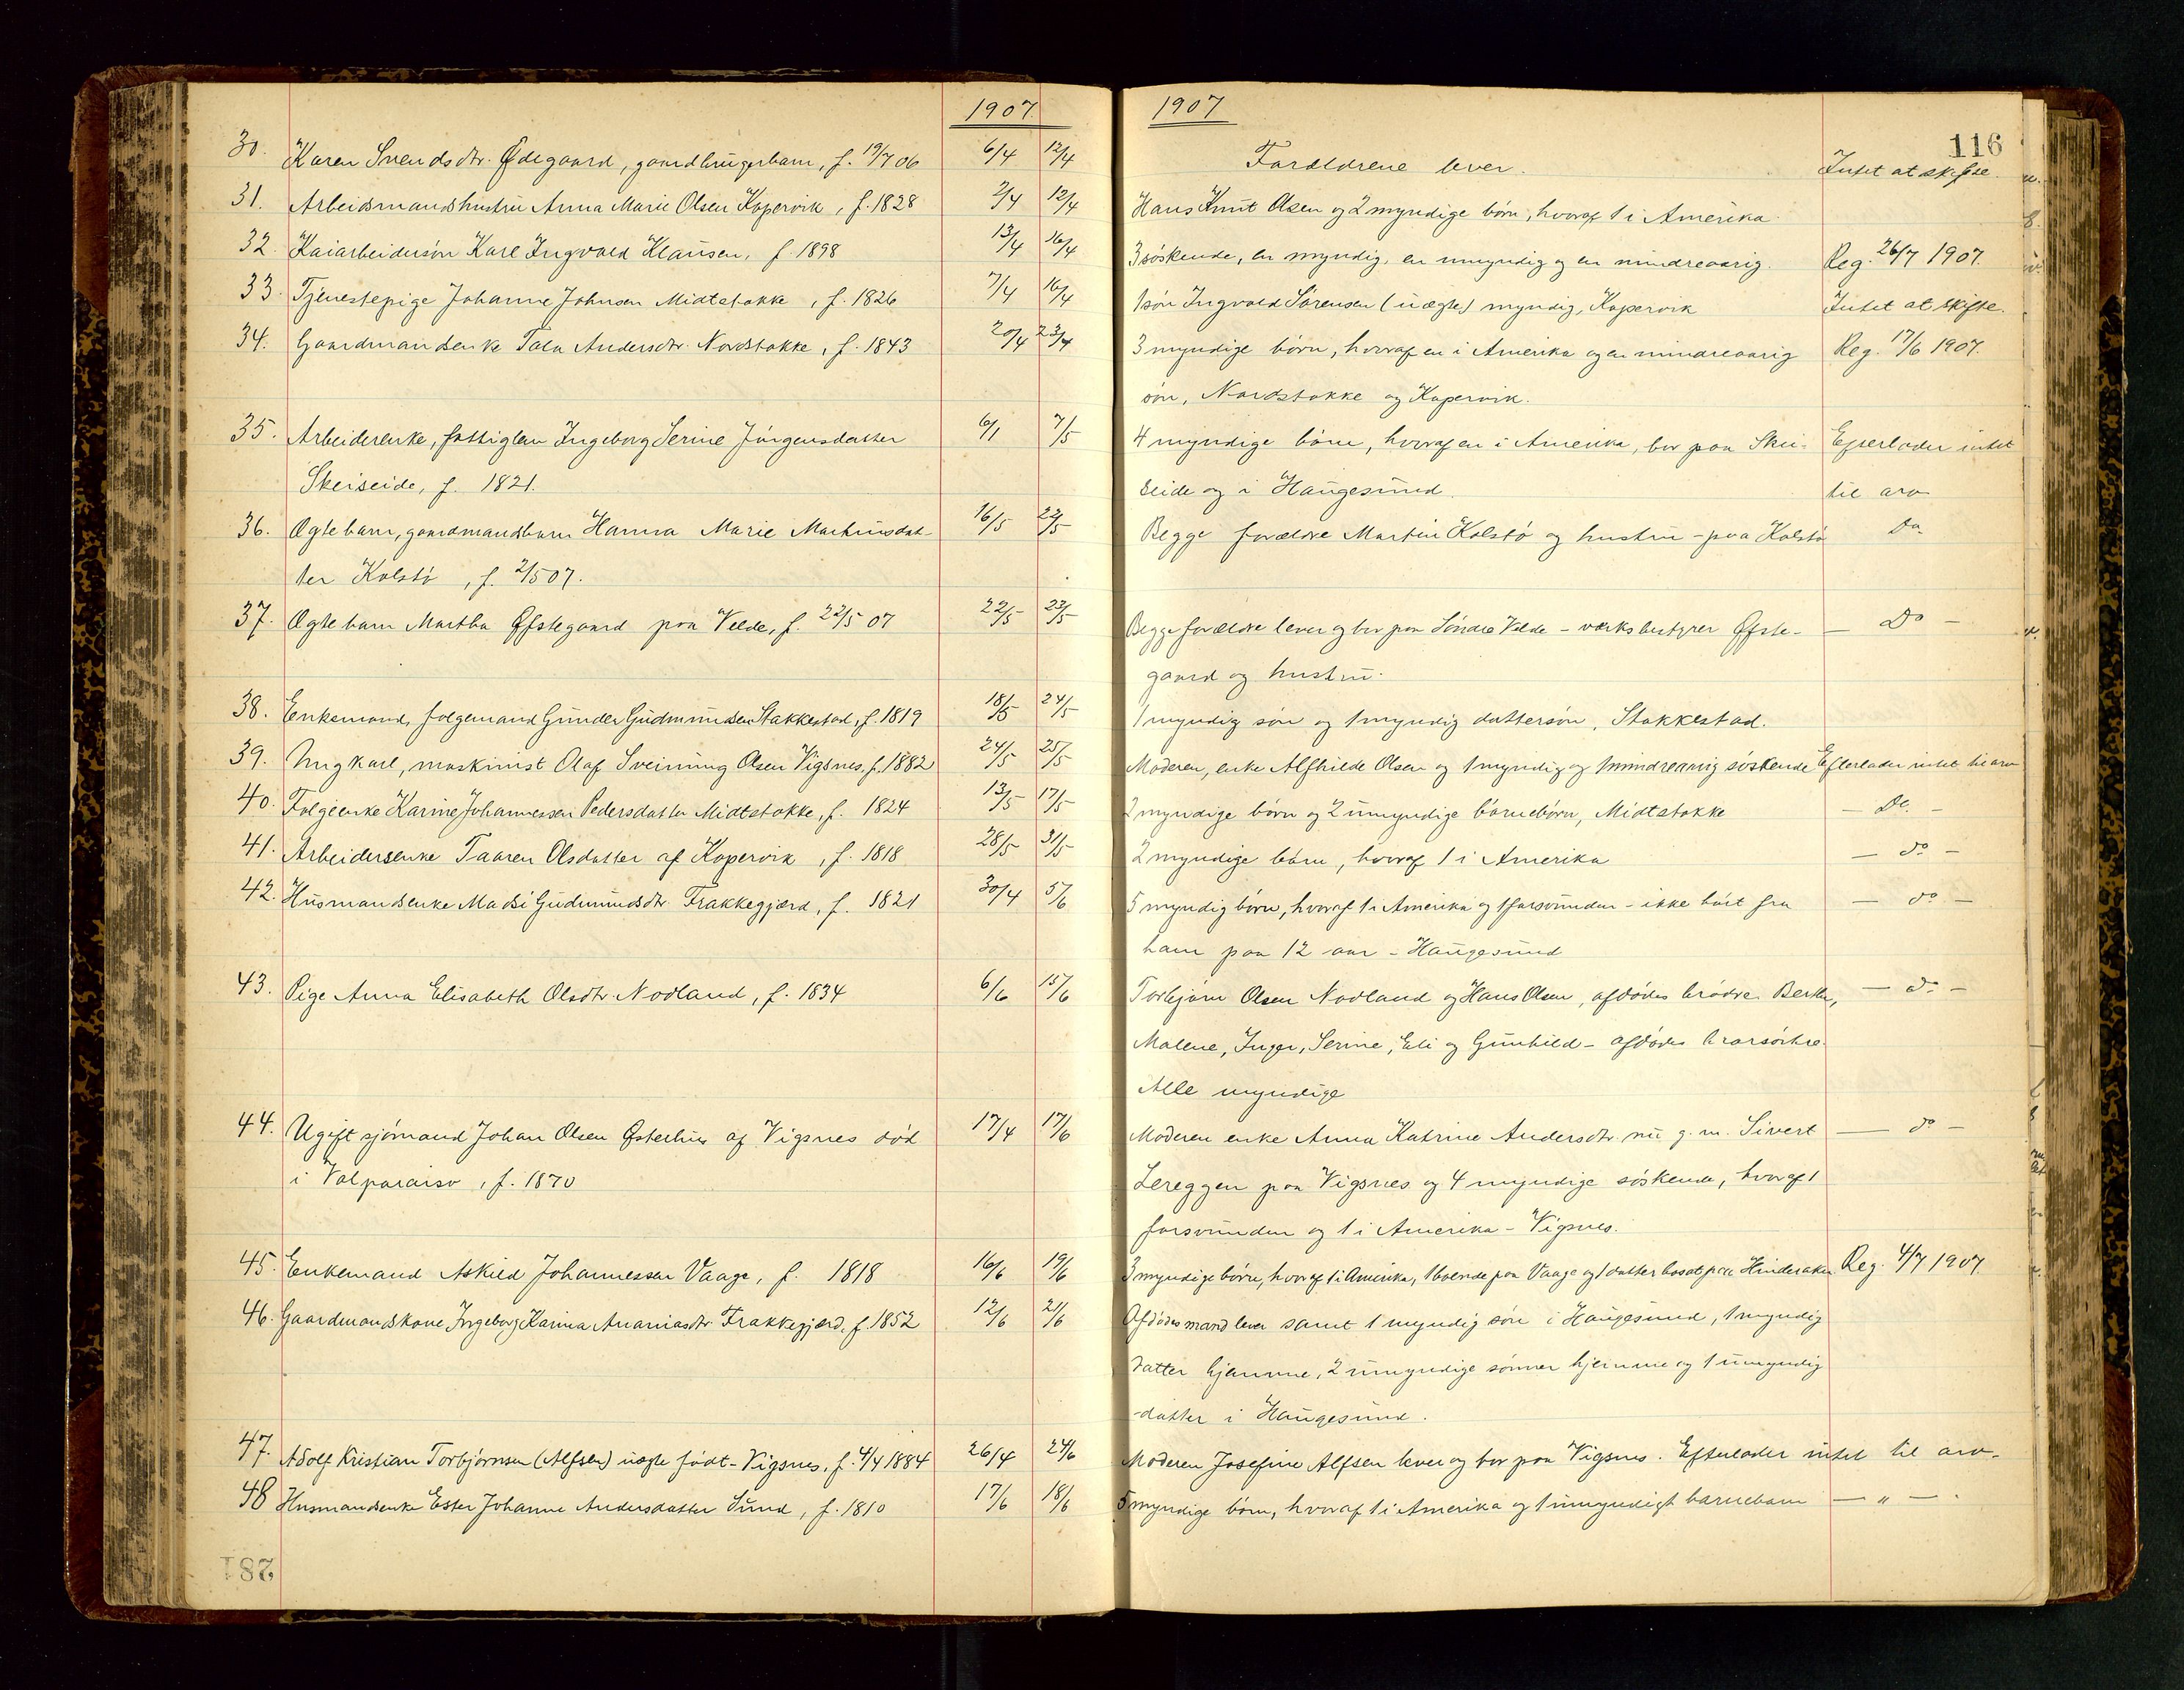 1907.
30. Karen Svendsdtr. Ødegaard, gaardbrugerbarn, f. 19/7 06 6/4 12/4
31. Arbeidsmandshustru Anna Marie Olsen Kopervik, f. 1828 2/4 12/4
32. Kaiarbeidersøn Karl Ingvald Klausen, f 1898 13/4 16/4
33. Tjenestepige Johanne Johnsen Midtstokke, f. 1826 7/4 16/4
34. Gaardmandsenke Tala Andersdtr. Nordstokke, f. 1843 20/4 23/4
35. Arbeiderenke, fattiglem Ingeborg Serine Jörgensdatter 6/1 7/5
Skeiseide, f. 1821.
36. Ægte barn, gaardmandsbarn Hanna Marie Martinusdat- 16/5 22/5
ter Kolstö, f. 2/5 07.
37. Ægte barn Martha Øfstegaard paa Velde, f. 22/5 07 22/5 23/5
38. Enkemand, folgemand Gunder Gudmundsen Stakkestad, f. 1819 18/5 24/5
39. Ungkarl, maskinist Olaf Sveinung Olsen Vigsnes, f. 1882 24/5 25/5
40. Folgeenke Karine Johannessen Pedersdatter Midtstokke, f. 1824 13/5 17/5
41. Arbeidersenke Taaren Olsdatter af Kopervik, f. 1818 28/5 31/5
42. Husmandsenke Madsi Gudmundsdtr. Frakkegjerd, f. 1821 30/4 5/6
43. Pige Anna Elisabeth Olsdtr. Nodland, f. 1834 6/6 15/6
44. Ugift sjömand Johan Olsen Østerhus af Vigsnes död 17/4 17/6
i Valparaiso, f. 1870
45. Enkemand Askild Johannessen Vaage, f. 1818 16/6 19/6
46. Gaardmandskone Ingeborg Karina Ananiasdtr Frakkegjerd, f. 1852 12/6 21/6
47. Adolf Kristian Torbjörnsen (Alfsen) uægte födt - Vigsnes, f. 4/4 1884 26/4 24/6
48 Husmandsenke Ester Johanne Andersdatter Sund, f. 1810 17/6 18/6
281
1907
116
Forældrene lever. Intet at skifte.
Hans Knut Olsen og 2 myndige börn, hvoraf 1 i Amerika.
3 söskende, en myndig, en umyndig og en mindreaarig. Reg. 26/7 1907.
1 sön Ingvald Sörensen (uægte) myndig, Kopervik Intet at skifte.
3 myndige börn, hvoraf en i Amerika og en mindreaarig Reg. 17/6 1907.
sön, Nordstokke og Kopervik.
4 myndige börn, hvoraf en i Amerika, bor paa Skei- Efterlader intet
seide og i Haugesund. til arv
Begge forældre Martin Kolstö og hustru - paa Kolstö Do
Begge forældre lever og bor paa Söndre Velde - værksbestyrer Øfste- — Do —
gaard og hustru.
1 myndig sön og 1 myndig dattersön, Stakkestad.
Moderen, enke Alfhilde Olsen og 1 myndig og 1 mindreaarig söskende Efterlader intet til arv
2 myndige börn og 2 umyndige börnebörn, Midtstokke — Do. —
2 myndige börn, hvoraf 1 i Amerika — do —
5 myndig börn, hvoraf 1 i Amerika og 1 forsvunden - ikke hört fra — do —
ham paa 12 aar - Haugesund
Torbjörn Olsen Nodland og Hans Olsen, afdödes brödre. Berthe, — do —
Malene, Inger, Serine, Eli og Gunhild - afdödes brorsöstre.
Alle myndige
Moderen enke Anna Katrine Andersdtr. nu g. m. Sivert — do —
Lereggen paa Vigsnes og 4 myndige söskende, hvoraf 1
forsvunden og 1 i Amerika - Vigsnes.
3 myndige börn, hvoraf 1 i Amerika, 1 boende paa Vaage og 1 datter bosat paa Hinderaker. Reg. 4/7 1907
Afdödes mand lever samt 1 myndig sön i Haugesund, 1 myndig
datter hjemme, 2 umyndige sönner hjemme og 1 umyndig
datter i Haugesund.
Moderen Josefine Alfsen lever og bor paa Vigsnes. Efterlader intet til arv.
5 myndige börn, hvoraf 1 i Amerika og 1 umyndigt barnebarn — " —